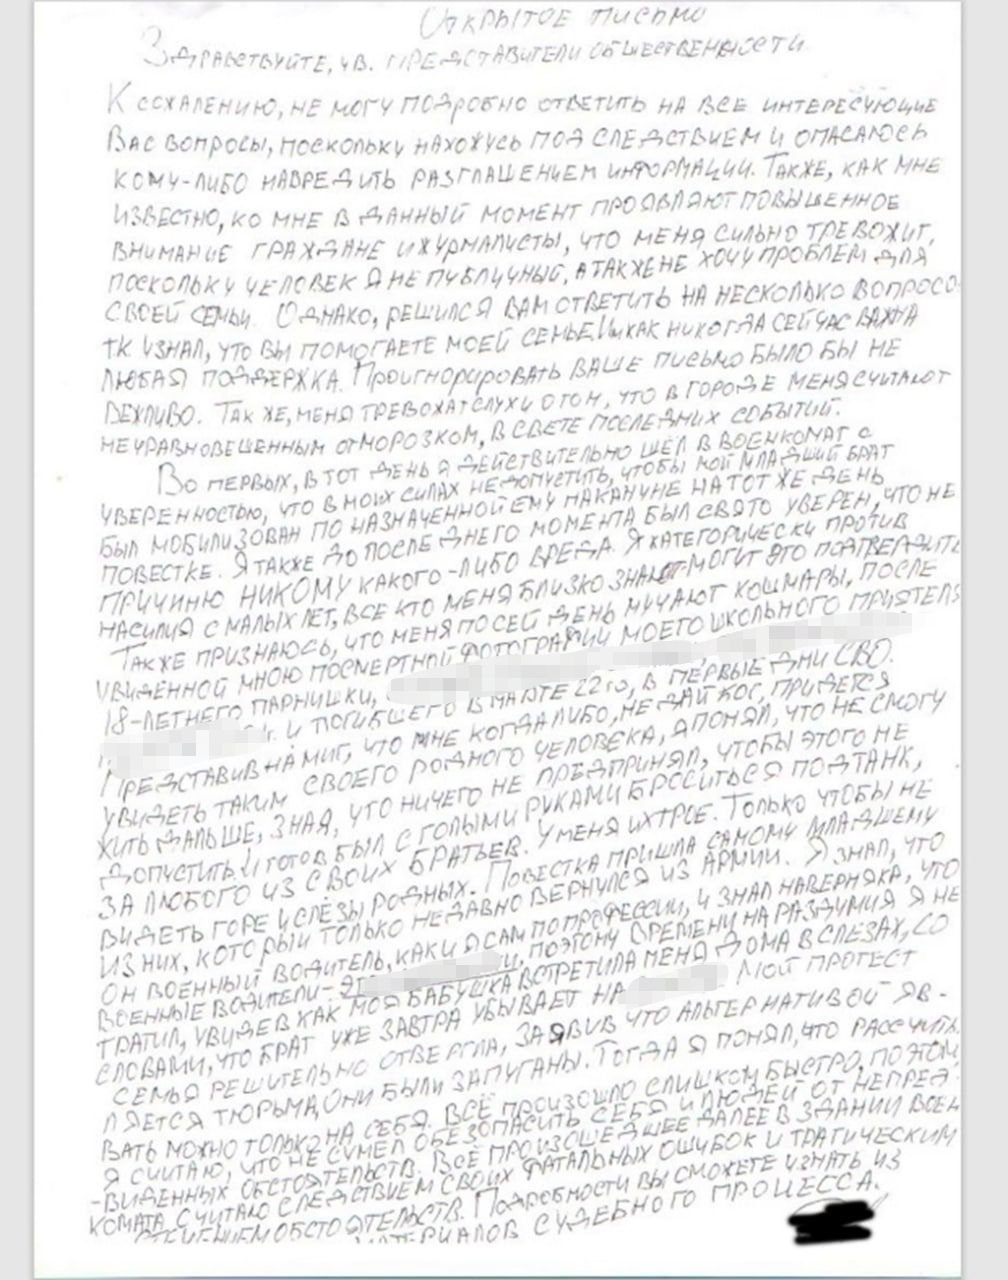 Открытое письмо
Здравствуйте, ув. представители общественности
К сожалению, не могу подробно ответить на все интересующие
Вас вопросы, поскольку нахожусь под следствием и опасаюсь
кому-либо навредить разглашением информации. Также, как мне
известно, ко мне в данный момент проявляют повышенное
внимание граждане и журналисты, что меня сильно тревожит,
поскольку человек я не публичный, а также не хочу проблем для
своей семьи. Однако, решился вам ответить на несколько вопросо
т.к. узнал, что вы помогаете моей семье. Им как никогда сейчас важна
любая поддержка. Проигнорировать ваше письмо было бы не
вежливо. Так же, меня тревожат слухи о том, что в городе меня считают
неуравновешенным отморозком, в свете последних событий.
Во первых, в тот день я действительно шёл в военкомат с
уверенностью, что в моих силах не допустить, чтобы мой младший брат
был мобилизован по назначенной ему накануне на тот же день
повестке. Я также до последнего момента был свято уверен, что не
причиню никому какого-либо вреда. Я категорически против
насилия с малых лет, все кто меня близко знают могут это подтвердить
Также признаюсь, что меня по сей день мучают кошмары, после
увиденной мною посмертной фотографии моего школьного приятеля
18-летнего парнишки,
г. и погибшего в марте 22го, в первые дни СВО.
Представив на миг, что мне когда либо, не дай бог, придется
увидеть таким своего родного человека, я понял, что не смогу
жить дальше, зная, что ничего не предпринял, чтобы этого не
допустить. И готов был с голыми руками броситься под танк,
за любого из своих братьев. У меня их трое. Только чтобы не
видеть горе и слёзы родных. Повестка пришла самому младшему
из них, который только недавно вернулся из армии. Я знал, что
он военный водитель, как и я сам по профессии, и знал наверняка, что
военные водители - поэтому времени на раздумия я не
тратил, увидев как моя бабушка встретила меня дома в слезах, со
словами, что брат уже завтра убывает на Мой протест
семья решительно отвергла, заявив что альтернативой яв-
ляется тюрьма, они были запуганы. Тогда я понял, что рассчиты
вать можно только на себя. Всё произошло слишком быстро, поэтом
я считаю, что не сумел обезопасить себя и людей от непред
-виденных обстоятельств. Всё произошедшее далее в здании воен
комата считаю следствием своих фатальных ошибок и трагическим
стечением обстоятельств. Подробности вы сможете узнать из
материалов судебного процесса.